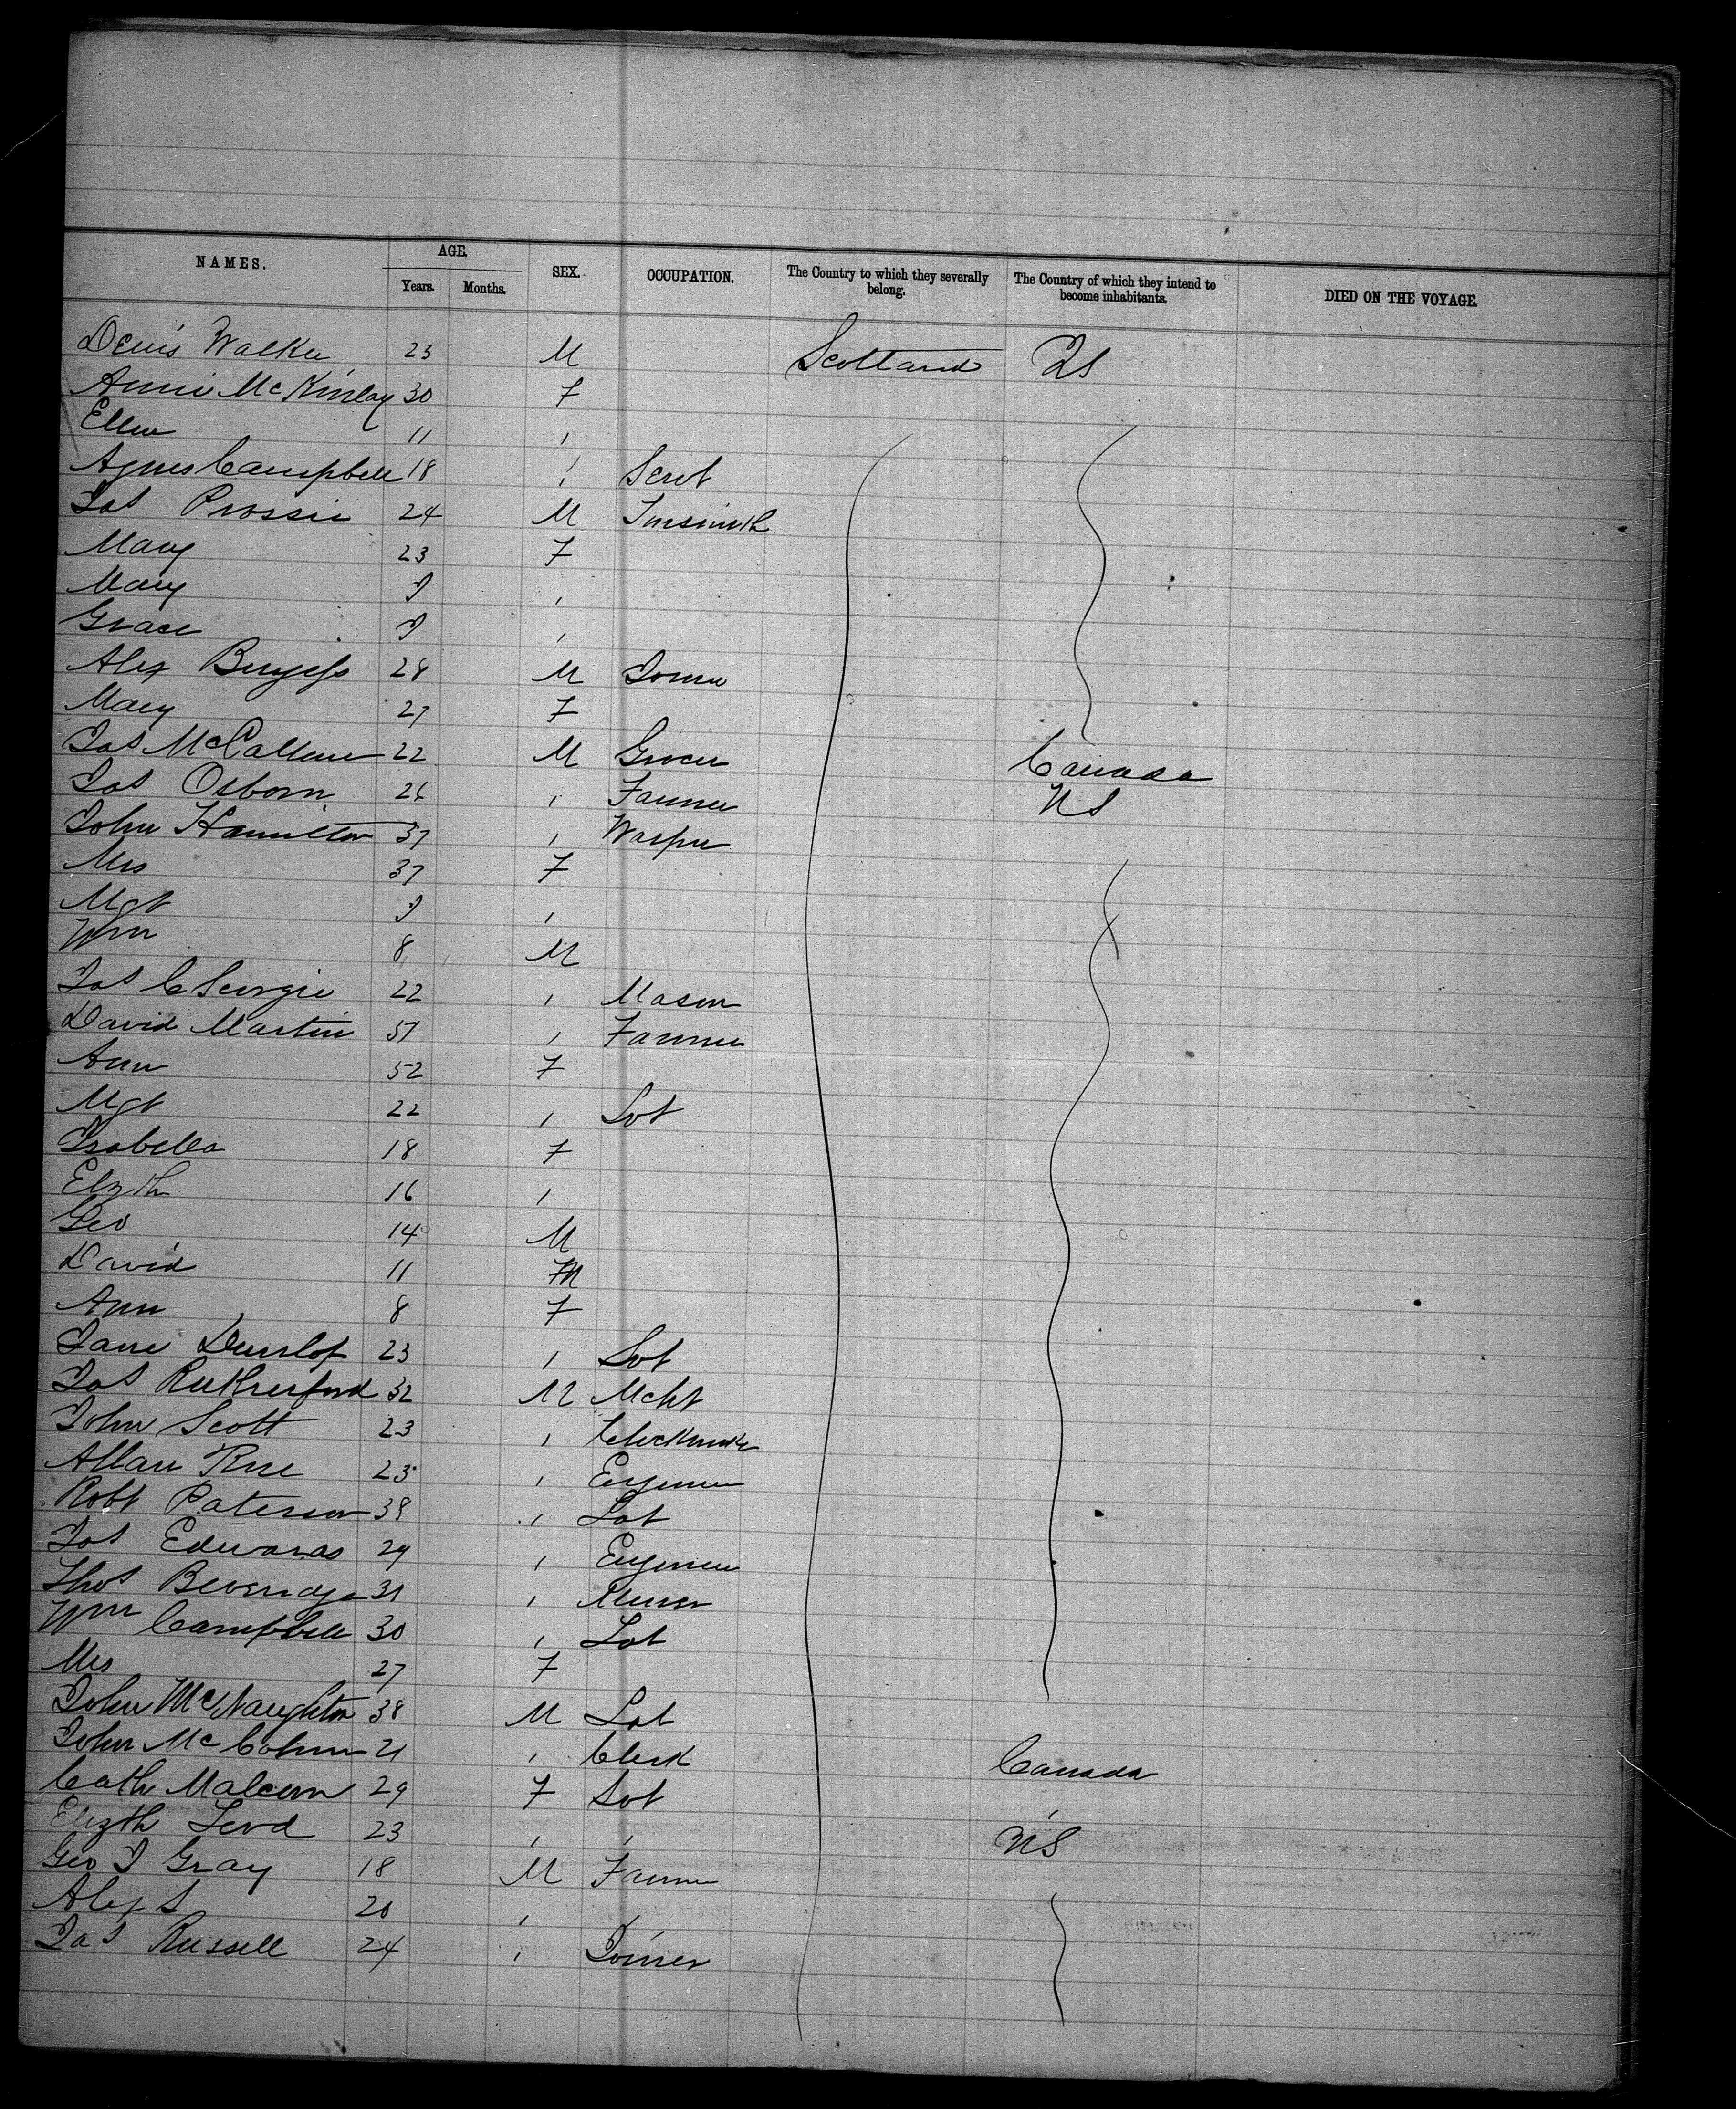 NAMES. AGE. Years. Months. SEX. OCCUPATION. The Country to which they severally belong. The Country of which they intend to become inhabitants. DIED ON THE VOYAGE.
Denis Walker 23 M Scotland US
Annie McKinlay 30 F
Ellen 11 "
Agnes Campbell 18 " Servt
Jas 24 M Tinsmith
Mary 23 F
Mary 9 "
Grace 9 "
Alex Burgess 28 M Joiner
Mary 27 F
Jas McCallum 22 M Grocer Canada
Jas Osborn 26 " Farmer US
John Hamilton 37 " Warper
Mrs 37 F
Mgt 9 "
Wm 8 M
Jas C 22 " Mason
David Martin 57 " Farmer
Ann 52 F
Mgt 22 " Svt
Isabella 18 F
Elzth 16 "
Geo 14 M
David 11 M
Ann 8 F
Jane Dunlop 23 " Svt
Jas Rutherford 32 M Mcht
John Scott 23 " Clockmakr
Allan 23 " Engineer
Robt Paterson 38 " Lab
Jas Edwards 29 " Engineer
Thos Beveridge 31 " Miner
Wm Campbell 30 " Lab
Mrs 27 F
John McNaughton 38 M Lab
John 21 " Clerk Canada
Cath Malcom 29 F Svt "
Elizth 23 " " US
Geo J Gray 18 M Farmer
Alex S 20 " "
Jas Russell 24 " Joiner